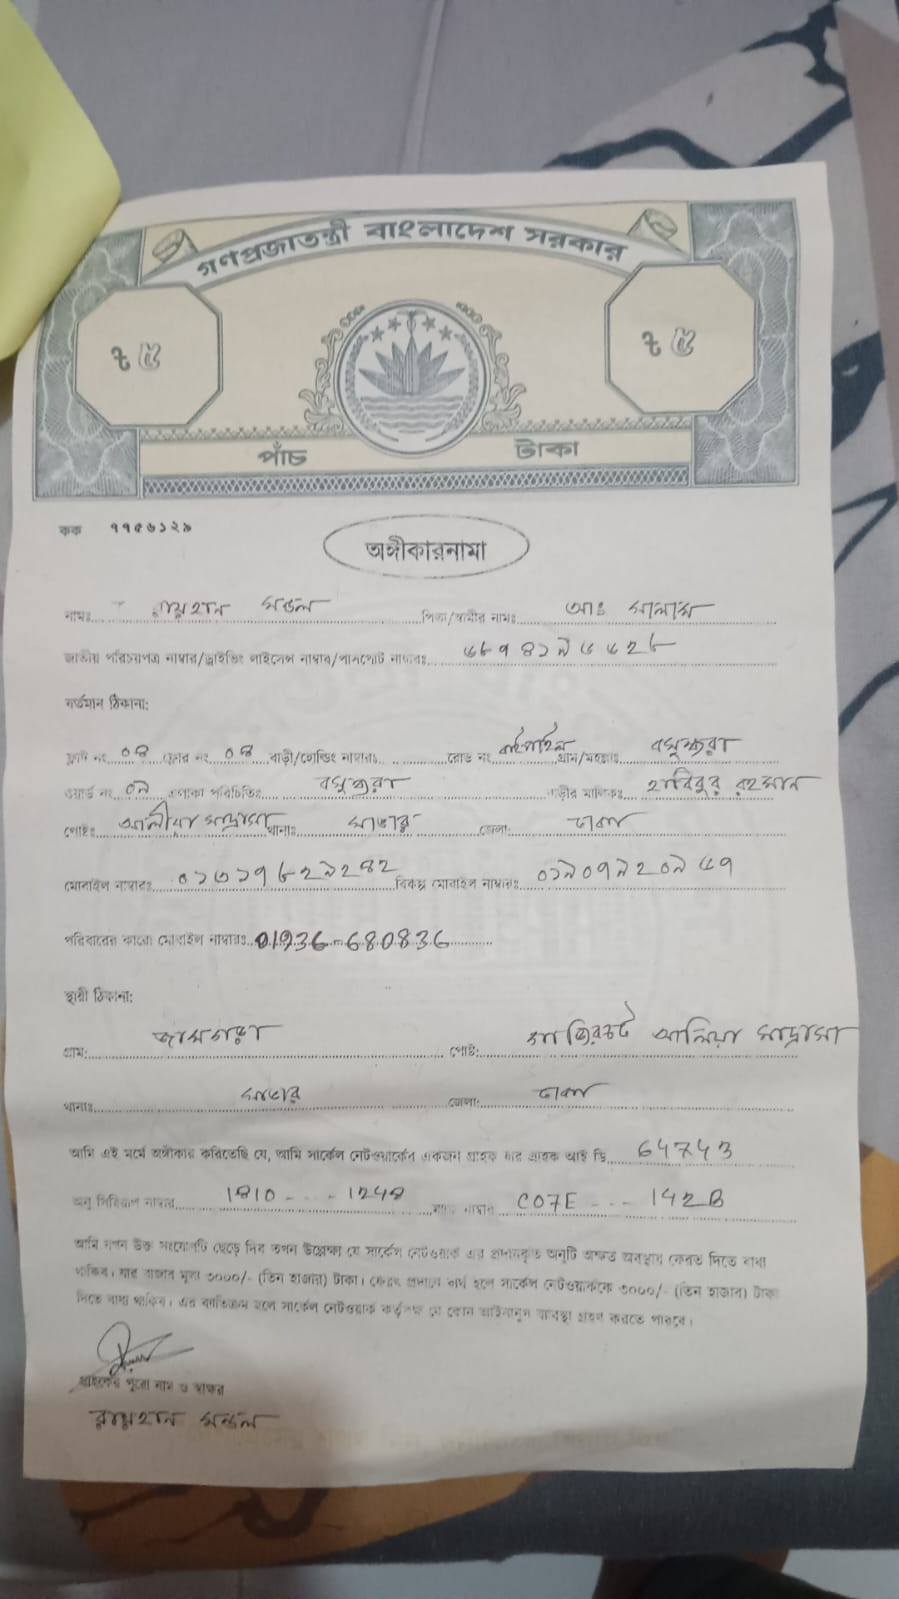 গণপ্রজাতন্ত্রী বাংলাদেশ সরকার
৳ ৫ ৳ ৫
পাঁচ টাকা
কক ৭৭৫৬১২৯
অঙ্গীকারনামা
নামঃ রায়হান মন্ডল পিতা/স্বামীর নামঃ আঃ সালাম
জাতীয় পরিচয়পত্র নাম্বার/ড্রাইভিং লাইসেন্স নাম্বার/পাসপোর্ট নাম্বারঃ
বর্তমান ঠিকানা:
ফ্লাট নং ০৪ ফ্লোর নং ০৪ বাড়ী/হোল্ডিং নাম্বারঃ রোড নং বাইপাইল গ্রাম/মহল্লাঃ বসুন্ধরা
ওয়ার্ড নং ০৯ এলাকা পরিচিতিঃ বসুন্ধরা বাড়ীর মালিকঃ হাবিবুর রহমান
পোষ্টঃ আলীয়া মাদ্রাসা থানাঃ সাভার জেলা: ঢাকা
মোবাইল নাম্বারঃ বিকল্প মোবাইল নাম্বারঃ
পরিবারের কারো মোবাইল নাম্বারঃ 01936-680836
স্থায়ী ঠিকানা:
গ্রাম: জামগড়া পোষ্ট: আলিয়া মাদ্রাসা
থানাঃ সাভার জেলা: ঢাকা
আমি এই মর্মে অঙ্গীকার করিতেছি যে, আমি সার্কেল নেটওয়ার্কের একজন গ্রাহক যার গ্রাহক আই ডি 64743
অনু সিরিয়াল নাম্বার 1810 --- 1248 ম্যাক নাম্বার C07E --- 142B
আমি যখন উক্ত সংযোগটি ছেড়ে দিব তখন উল্লেক্ষ্য যে সার্কেল নেটওয়ার্ক এর প্রদানকৃত অনুটি অক্ষত অবস্থায় ফেরত দিতে বাধ্য
থাকিব। যার বাজার মূল্য ৩০০০/- (তিন হাজার) টাকা। ফেরৎ প্রদানে ব্যর্থ হলে সার্কেল নেটওয়ার্ককে ৩০০০/- (তিন হাজার) টাকা
দিতে বাধ্য থাকিব। এর ব্যতিক্রম হলে সার্কেল নেটওয়ার্ক কর্তৃপক্ষ যে কোন আইনানুগ ব্যবস্থা গ্রহন করতে পারবে।
গ্রাহকের পুরো নাম ও স্বাক্ষর
রায়হান মন্ডল